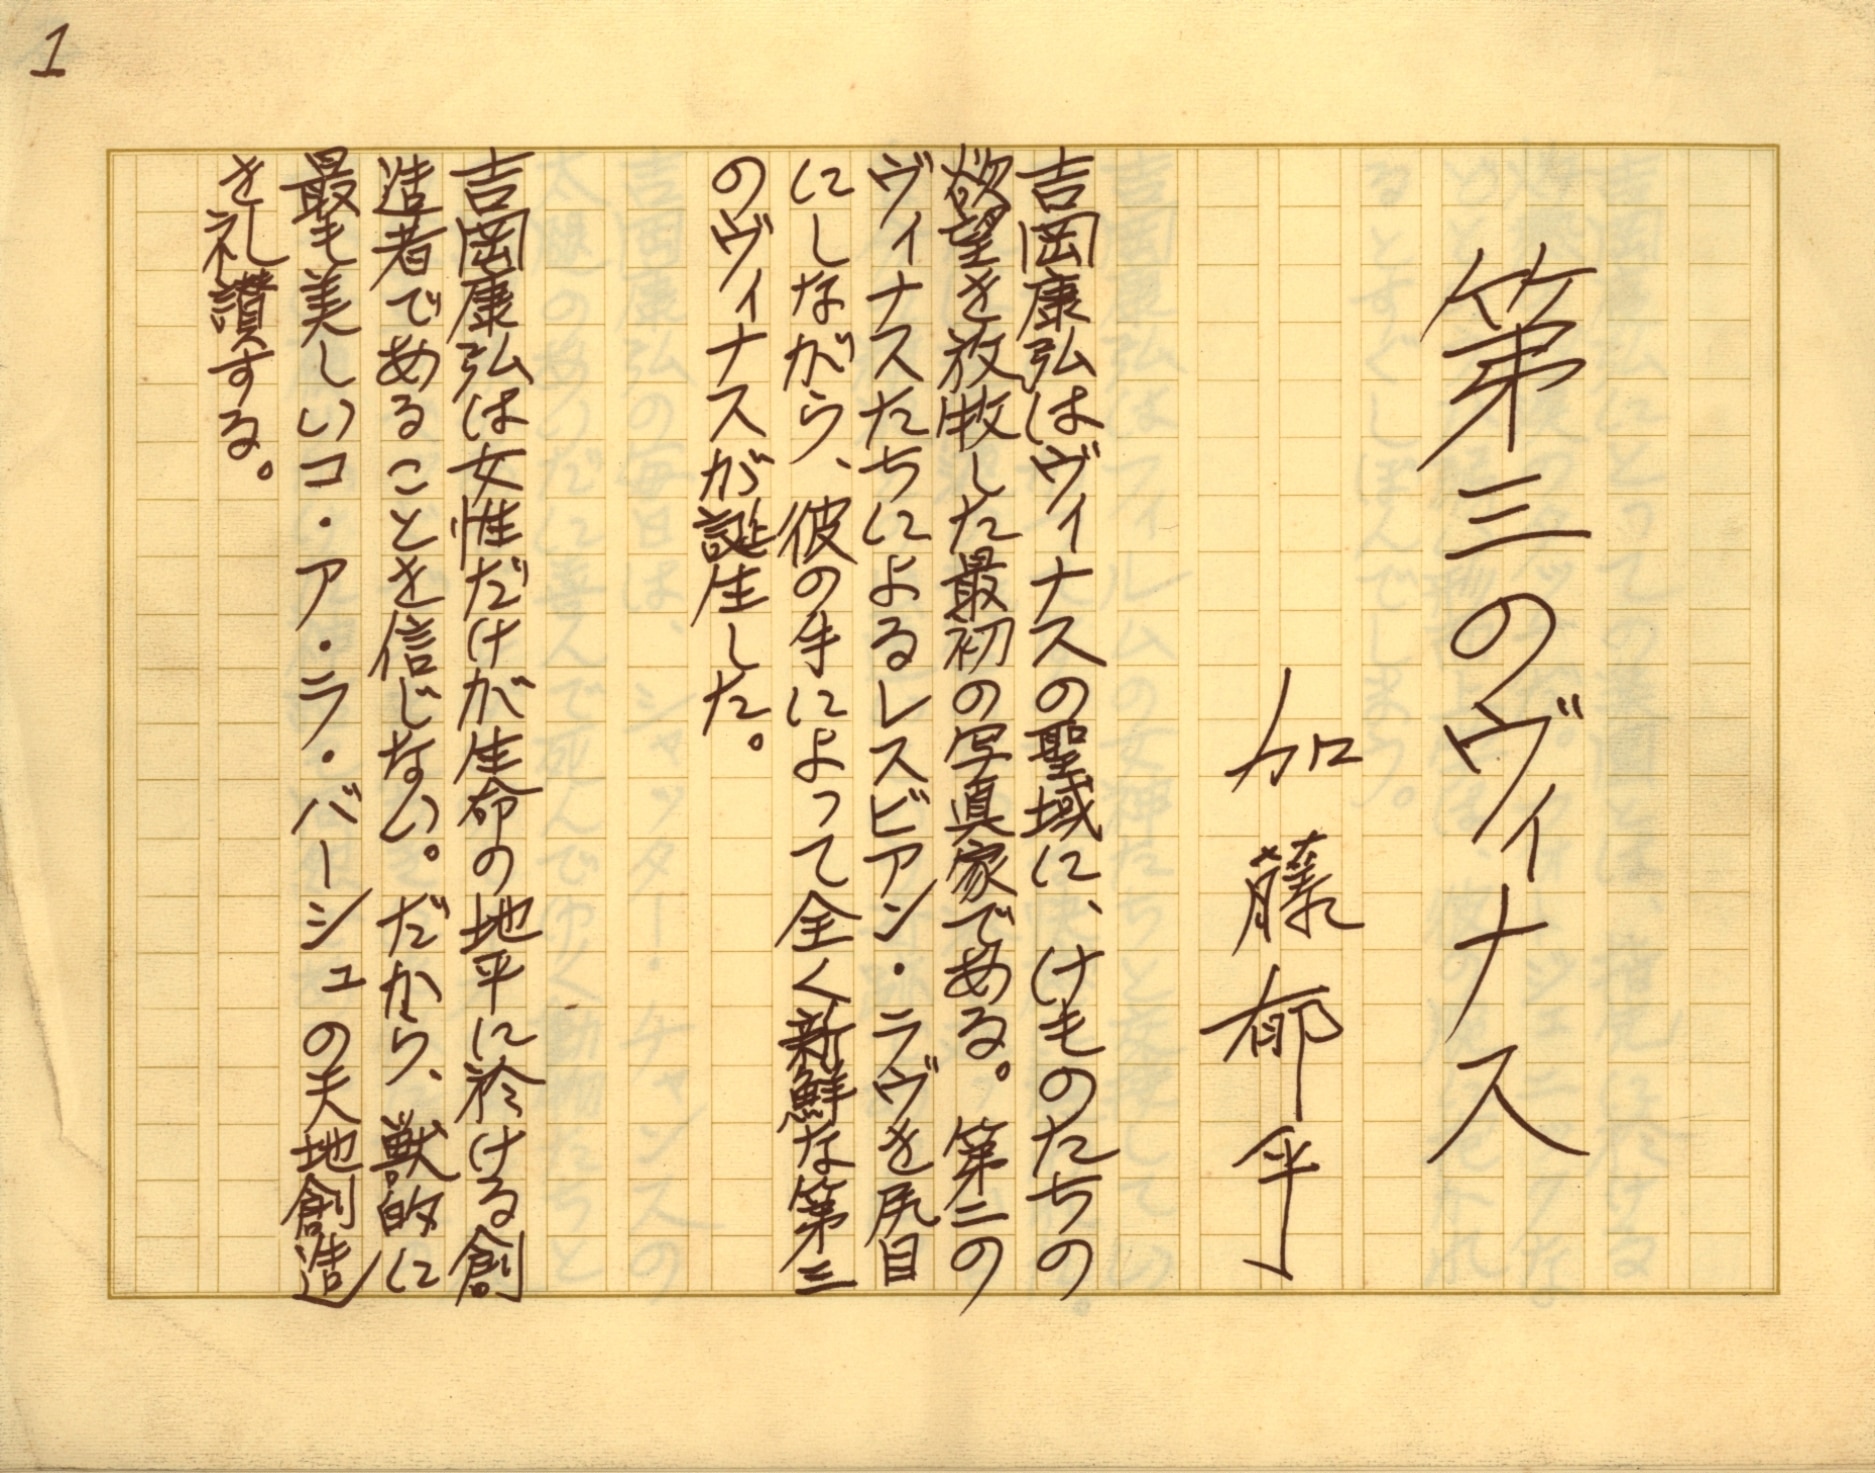 1
第三のヴィナス
加藤郁乎
吉岡康弘はヴィナスの聖域に、けものたちの
欲望を放牧した最初の写真家である。第二の
ヴィナスたちによるレスビアン・ラヴを尻目
にしながら、彼の手によって全く新鮮な第三
のヴィナスが誕生した。
吉岡康弘は女性だけが生命の地平に於ける創
造者であることを信じない。だから、獣的に
最も美しいコ・ア・ラ・バーシュの天地創造
を礼讃する。